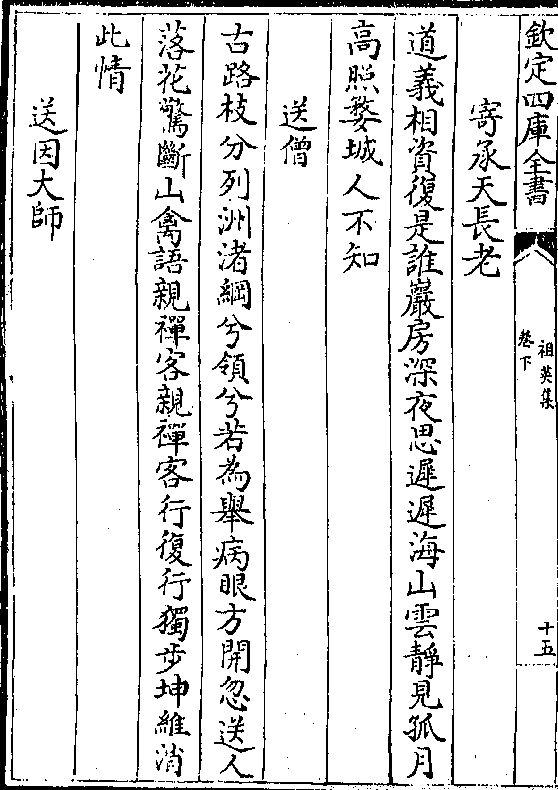 欽定四庫全書
祖英集
卷下
十五
寄承天長老
道義相資復是誰巖房深夜思遲遲海山雲靜見孤月
高照婺城人不知
送僧
古路枝分列洲渚綱兮領兮若為舉病眼方開忽送人
落花驚斷山禽語親禪客親禪客行復行獨步坤維消
此情
送因大師